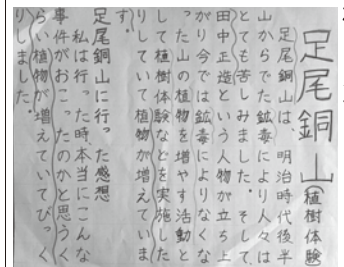 足尾銅山(植樹体験)
足尾銅山は、明治時代後半
山からでた鉱毒により人々は
とても苦しみました。そして
田中正造という人物が立ち上
がり今では鉱毒によりなくな
った山の植物を増やす活動と
して植樹体験などを実施した
りしていて植物が増えていま
す。
足尾銅山に行った感想
私は行った時、本当にこんな
事件がおこったのかと思うく
らい植物が増えていてびっく
りしました。